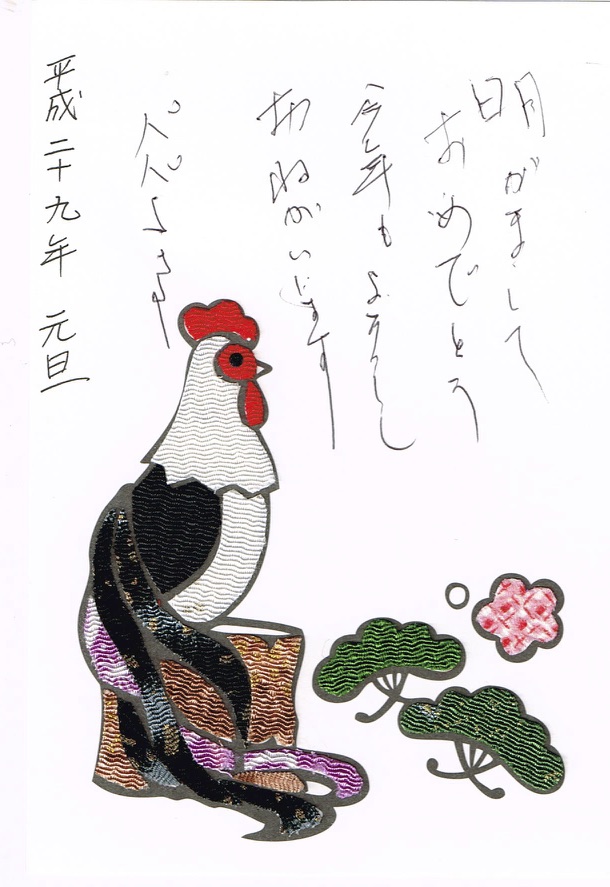 明がまして
おめでとう
今年もよろしく
おねがいします
ペペ
平成二十九年 元旦